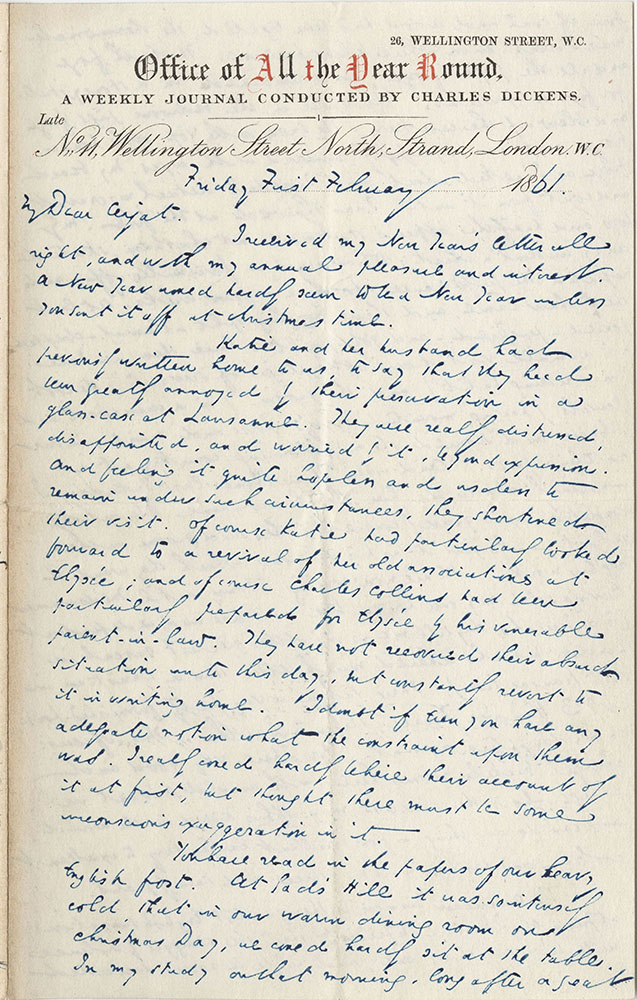 26, WELLINGTON STREET, W.C.
Office of All the Year Round,
A WEEKLY JOURNAL CONDUCTED BY CHARLES DICKENS.
Late
No. 11, Wellington Street North, Strand, London. W.C.
Friday First February 1861.
My Dear Cerjat.
I received my New Years letter all
right, and with my annual pleasure and interest.
A New Year would hardly seem to be a New Year unless
you sent it off at Christmas time.
Katie and her husband had
previously written home to us, to say that they had
been greatly annoyed by their preservation in a
glass-case at Lausanne. They were really distressed,
disappointed, and worried by it, beyond expression.
And feeling it quite hopeless and useless to
remain under such circumstances, they shortened
their visit. Of course Katie had particularly looked
forward to a revival of her old associations at
Elysée; and of course Charles Collins had been
particularly prepared for Elysée by his venerable
parent-in-law. They have not recovered their absurd
situation unto this day, but constantly revert to
it in writing home. I doubt if even you have any
adequate notion what the constraint upon them
was. I really could hardly believe their account of
it at first, but thought there must be some
unconscious exaggeration in it.
You have read in the papers of our heavy
English frost. At Gad's Hill it was so intensely
cold, that in our warm dining room on
Christmas Day, we could hardly sit at the table.
In my study on that morning, long after a great